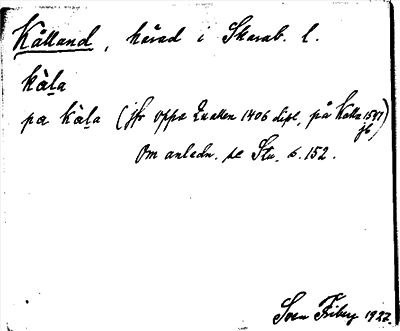 Kålland, härad i Skarab. l.
kåla
pa kåla (jfr oppa 1406 dipl, på Kålla 1541
jb)
Om anledn. se Stu. s. 152.
Sven Friberg 1927